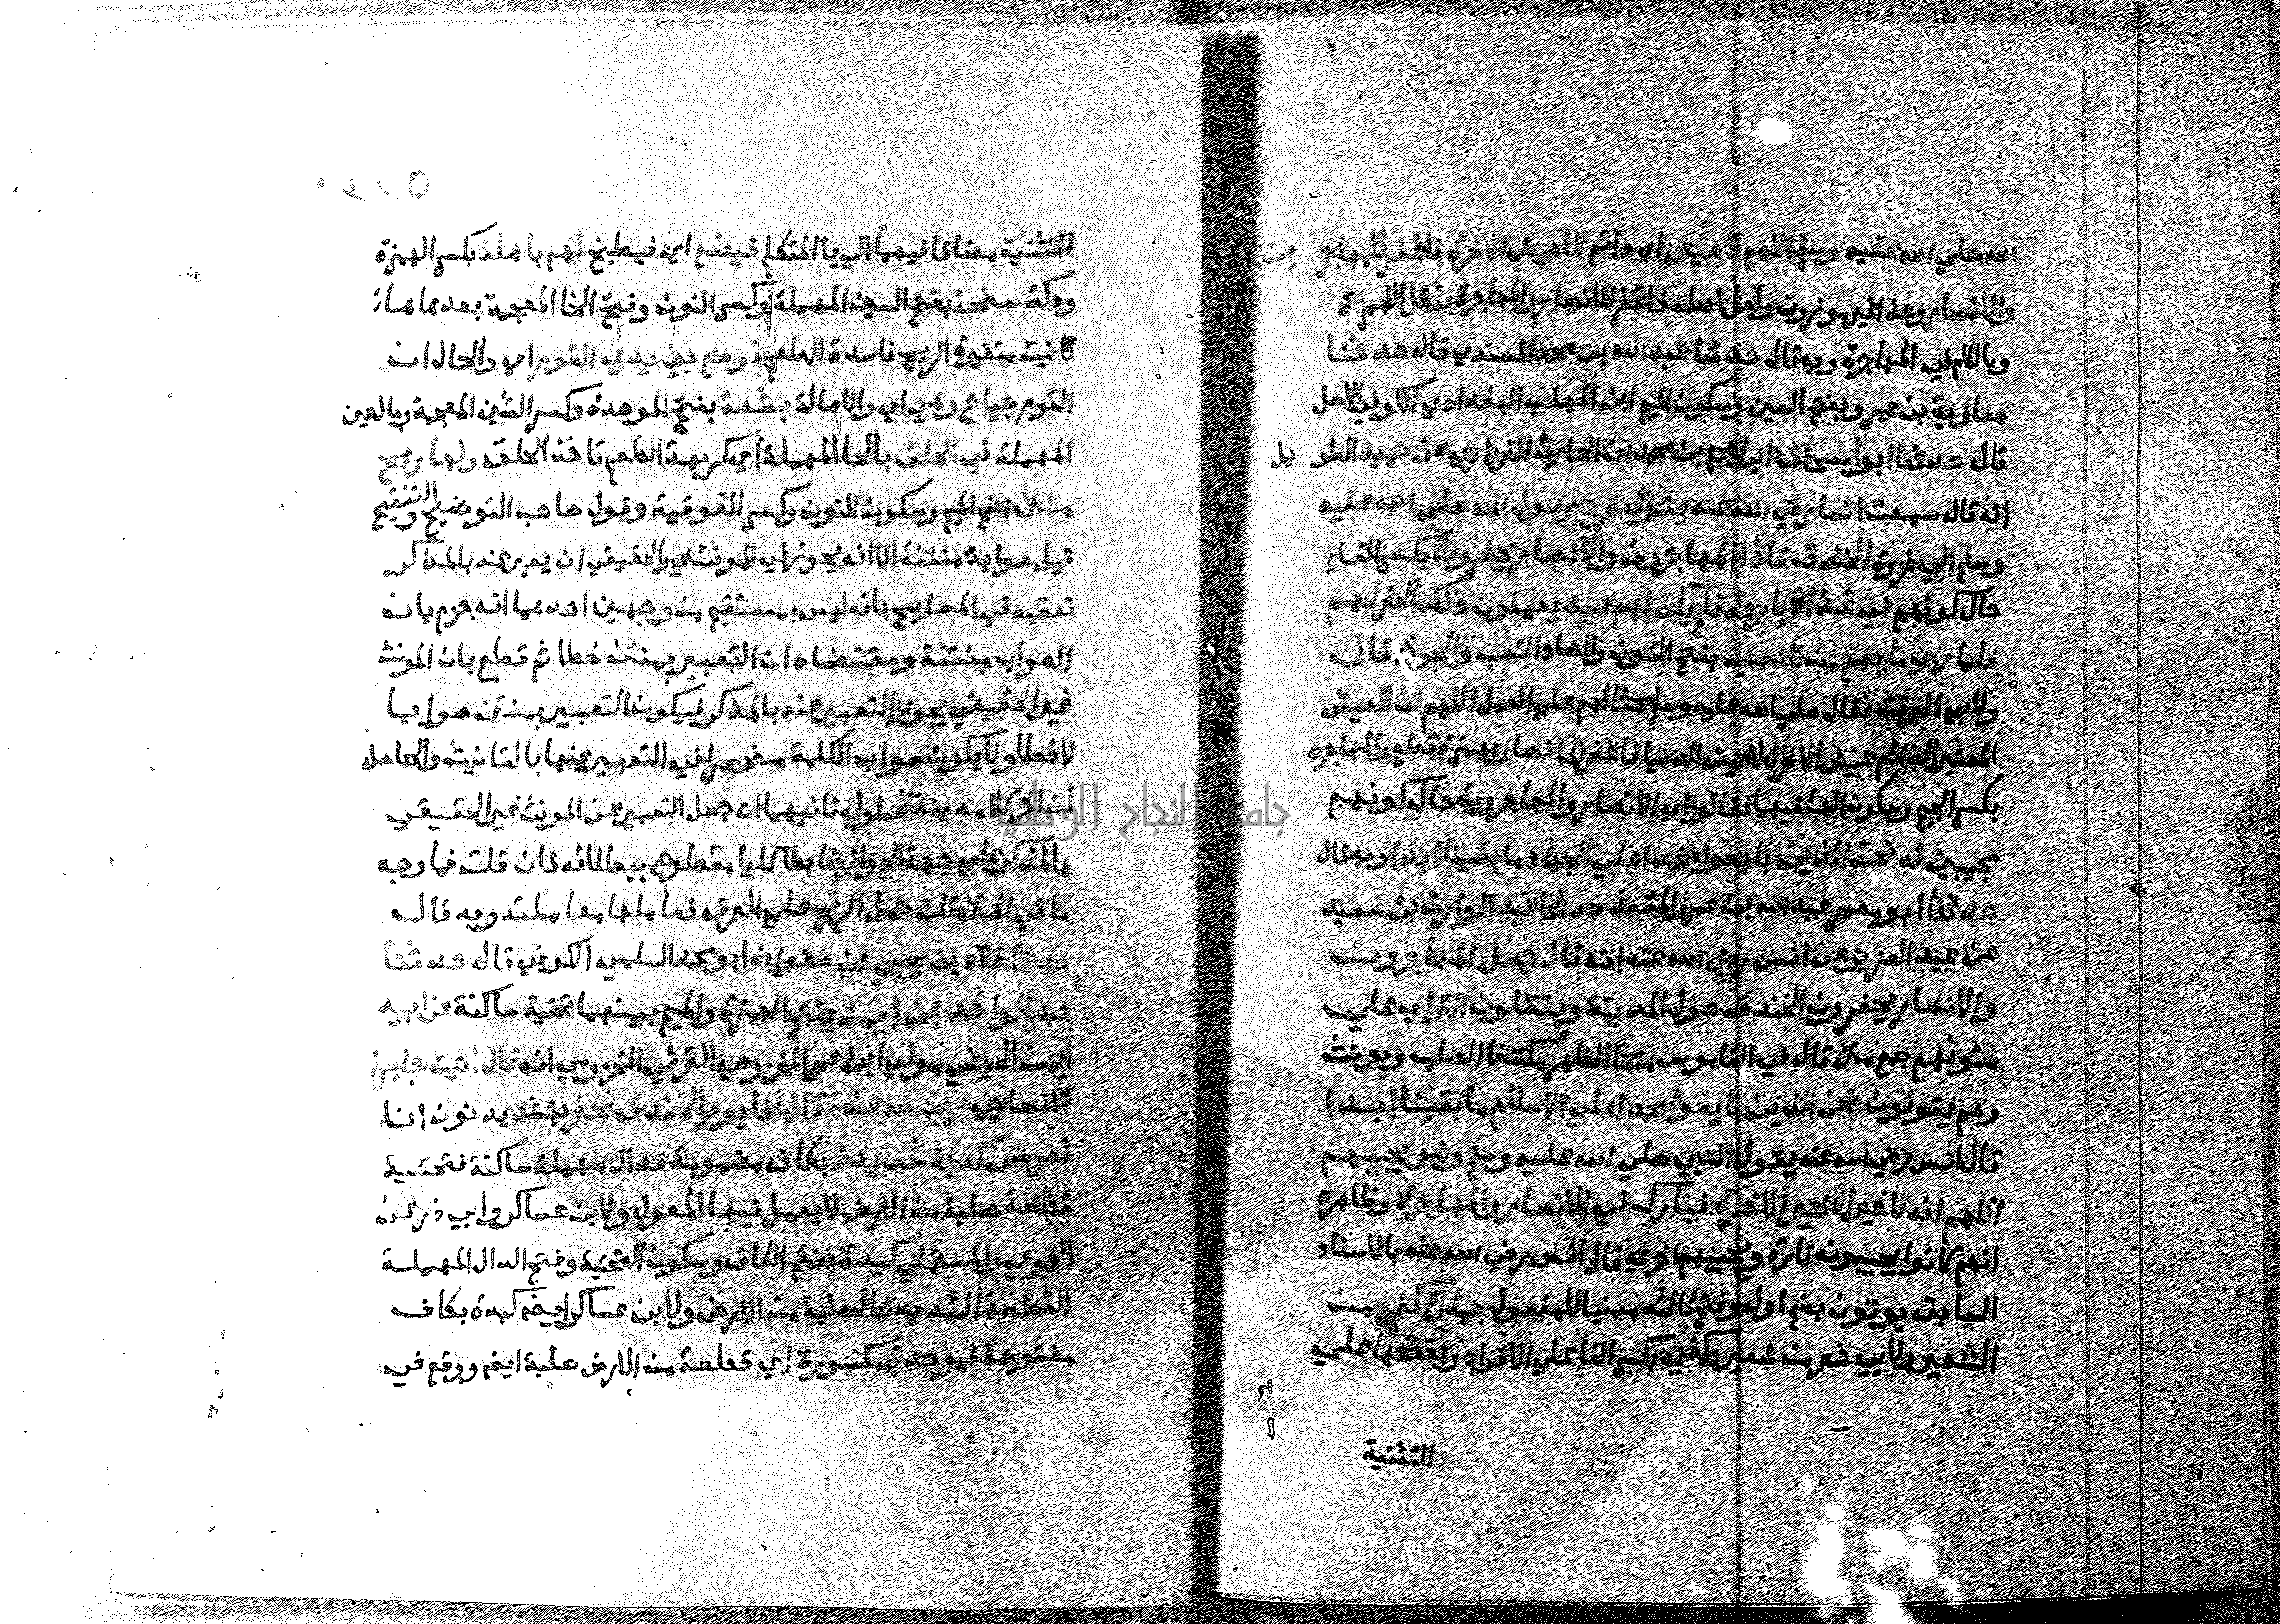 الله صلي الله عليه وسلم اللهم لا عيش اي دائم الا عيش الاخرة فاغفر للمهاجرين
والانصار وعند غير موزون ولعل اصله فاغفر للانصار والمهاجرة بنقل الهمزة
وباللام في المهاجرة وبه قال حدثنا عبد الله بن محمد المسندي قال حدثنا
معاوية بن عمرو بفتح العين وسكون الميم ابن المهلب البغدادي الكوفي الاصل
قال حدثنا ابو اسحاق ابراهيم بن محمد بن الحارث الفزاري عن حميد الطويل
انه قال سمعت انسا رضي الله عنه يقول خرج رسول الله صلي الله عليه
وسلم الي غزوة الخندق فاذا المهاجرون والانصار يحفرون بكسر الفاء
حال كونهم في غداة باردة فلم يكن لهم عبيد يعملون ذلك الحفر لهم
فلما راي ما بهم من النصب بفتح النون والصاد التعب والجوع قال
ولابي الوقت فقال صلي الله عليه وسلم حثا لهم علي العمل اللهم ان العيش
المعتبر الدائم عيش الاخرة لا عيش الدنيا فاغفر للانصار بهمزة قطع والمهاجره
بكسر الجيم وسكون الها فيهما فقالوا اي الانصار والمهاجرون حال كونهم
مجيبين له نحن الذين بايعوا محمدا علي الجهاد ما بقينا ابدا وبه قال
حدثنا ابو معمر عبد الله بن عمرو المقعد حدثنا عبد الوارث بن سعيد
عن عبد العزيز عن انس رضي الله عنه انه قال جعل المهاجرون
والانصار يحفرون الخندق حول المدينة وينقلون التراب علي
متونهم جمع متن قال في القاموس متنا الظهر مكتنفا الصلب ويونث
وهم يقولون نحن الذين بايعوا محمدا علي الاسلام ما بقينا ابدا
قال انس رضي الله عنه يقول النبي صلي الله عليه وسلم وهو يجيبهم
اللهم انه لا خير الا خير الاخرة فبارك في الانصار والمهاجرة وظاهره
انهم كانوا يجيبونه تارة ويجيبهم اخري قال انس رضي الله عنه بالاسناد
السابق يوتون بضم اوله وفتح ثالثه مبنيا للمفعول بملئ كفي من
الشعير ولابي ذر من شعير وكفي بكسر الفا علي الافراد وبفتحها علي
التثنية
٢١٥
التثنية مضافا فيهما الي يا المتكلم فيصنع اي فيطبخ لهم باهالة بكسر الهمزة
ودكة سنخة بفتح السين المهملة وكسر النون وفتح الخا المعجمة بعدها هاء
تانيث متغيرة الريح فاسدة الطعم توضع بين يدي القوم اي والحال ان
القوم جياع وهي اي والاهالة بشعة بفتح الموحدة وكسر الشين المعجمة وبالعين
المهملة في الحلق بالحا المهملة اي كريهة الطعم تاخذ الحلق ولها ريح
منتن بضم الميم وسكون النون وكسر الفوقية وقول صاحب التوضيح والتنقيح
قيل صوابه منتنة الا انه يجوز في المونث غير الحقيقي ان يعبر عنه بالمذكر
تعقبه في المصابيح بانه ليس بمستقيم من وجهين احدهما انه جزم بان
الصواب منتنة ومقتضاه ان التعبير بمنتن خطا ثم قطع بان المونث
غير الحقيقي يجوز التعبير عنه بالمذكر فيكون التعبير بمنتن صوابا
لا خطا ولا يكون صواب الكلمة منحصرا في التعبير عنها بالتانيث والحاصل
ان اخر كلامه ينقض اوله ثانيهما ان جعل التعبير عن المونث غير الحقيقي
بالمذكر علي جهة الجواز ضابطا كليا مقطوع ببطلانه فان قلت فما وجه
ما في المتن قلت حمل الريح علي العرف فعاملها معاملته وبه قال
حدثنا خلاد بن يحيي بن صفوان ابو محمد السلمي الكوفي قال حدثنا
عبد الواحد بن ايمن بفتح الهمزة والميم بينهما تحتية ساكنة عن ابيه
ايمن الحبشي مولي ابن عمر المخزومي القرشي المخزومي انه قال اتيت جابرا
الانصاري رضي الله عنه فقال انا يوم الخندق نحفر بتشديد نون انا
فعرضت كدية شديدة بكاف مضمومة فدال مهملة ساكنة فتحتية
قطعة صلبة من الارض لا يعمل فيها المعول ولابن عساكر وابي ذر عن
الحموي والمستملي كيدة بفتح الكاف وسكون التحتية وفتح الدال المهملة
القطعة الشديدة الصلبة من الارض ولابن عساكر ايضم كبدة بكاف
مفتوحة فموحدة مكسورة اي قطعة من الارض صلبة ايضم ووقع في
جامعة النجاح الوطنية